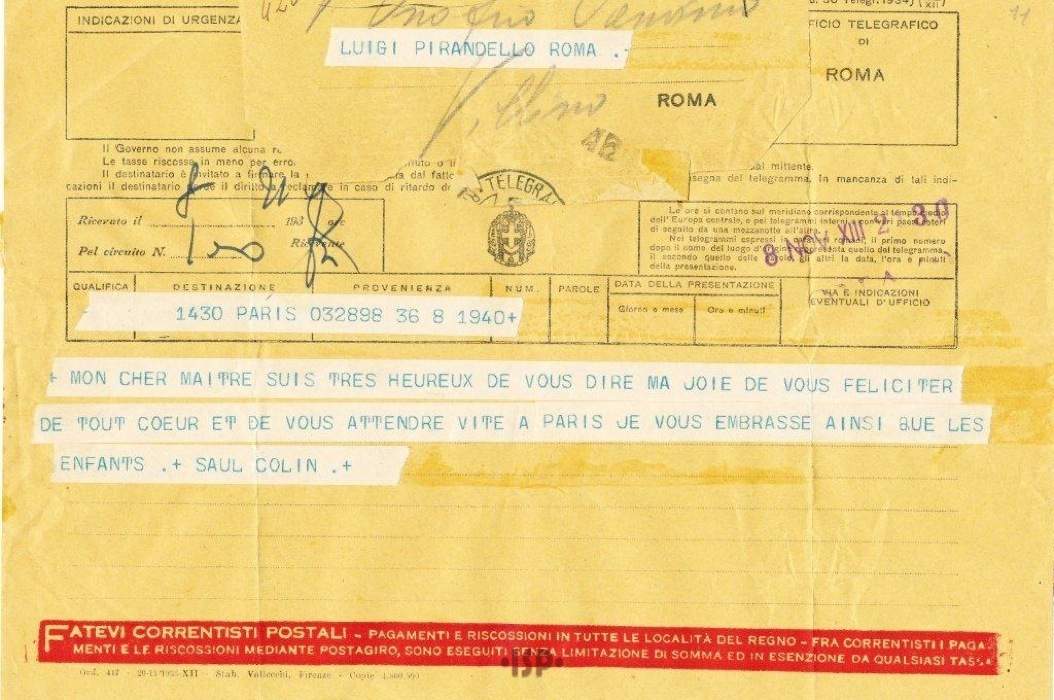 INDICAZIONI DI URGENZA
FICIO TELEGRAFICO
DI
ROMA
LUIGI PIRANDELLO ROMA .-
ROMA
Il Governo non assume alcuna
Le tasse riscosse in meno per
Il destinatario è invitato a firmare la
cazioni il destinatario perde il diritto a reclamare in caso di ritardo
dal mittente.
segna del telegramma. In mancanza di tali indi-
TELEGRA
Ricevuto il 193 ore
Pel circuito N.
Le ore si contano sul meridiano corrispondente al tempo medio
dell'Europa centrale, e pei telegrammi interni
di seguito da una mezzanotte all'altra.
Nei telegrammi espressi in caratteri romani, il primo numero
dopo il nome del luogo d'origine rappresenta quello del telegramma,
il secondo quello delle parole, gli altri la data, l'ora e minuti
della presentazione.
8 NOV XIII 2 30
QUALIFICA DESTINAZIONE PROVENIENZA NUM. PAROLE DATA DELLA PRESENTAZIONE VIA E INDICAZIONI
EVENTUALI D'UFFICIO
Giorno e mese Ora e minuti
1430 PARIS 032898 36 8 1940+
+ MON CHER MAITRE SUIS TRES HEUREUX DE VOUS DIRE MA JOIE DE VOUS FELICITER
DE TOUT COEUR ET DE VOUS ATTENDRE VITE A PARIS JE VOUS EMBRASSE AINSI QUE LES
ENFANTS .+ SAUL COLIN .+
FATEVI CORRENTISTI POSTALI - PAGAMENTI E RISCOSSIONI IN TUTTE LE LOCALITÀ DEL REGNO - FRA CORRENTISTI I PAGA
MENTI E LE RISCOSSIONI MEDIANTE POSTAGIRO, SONO ESEGUITI SENZA LIMITAZIONE DI SOMMA ED IN ESENZIONE DA QUALSIASI TASSA
•ISP•
Stab. Vallecchi, Firenze - Copie